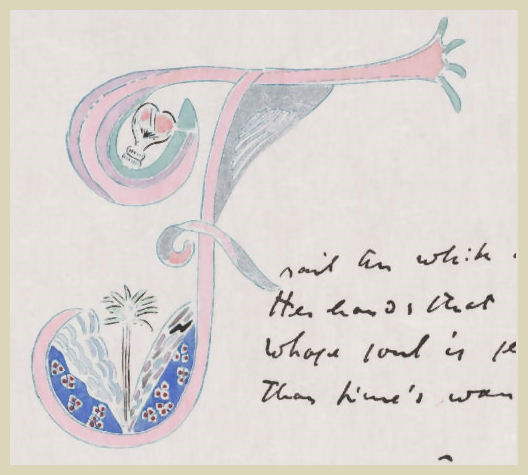 Frail the white
Her hands that
Whose soul is
Than time's wan